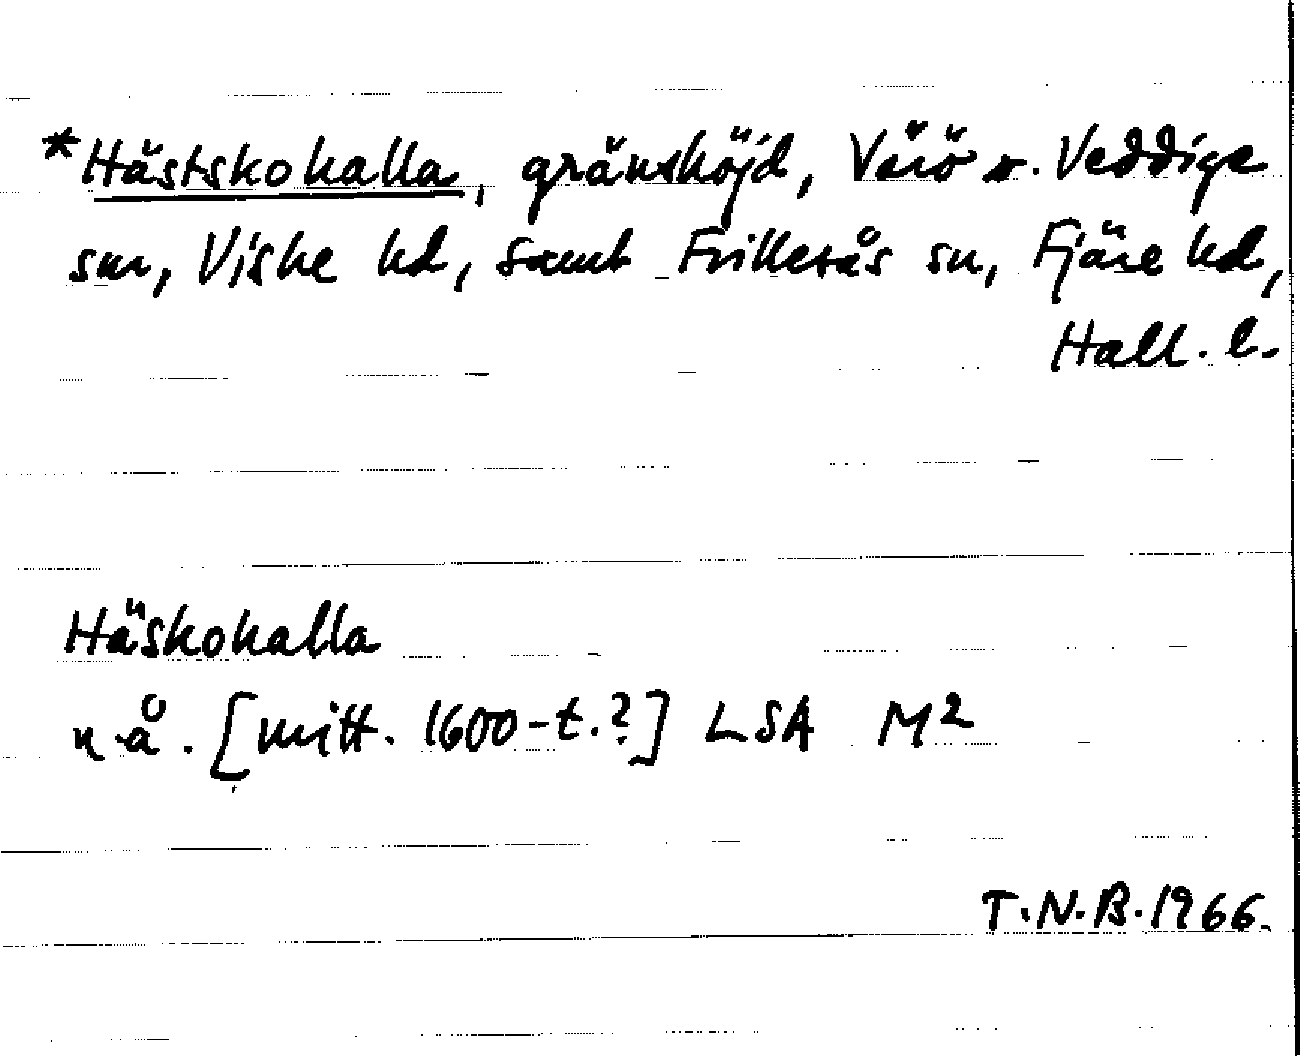 *Hästskohalla, gränshöjd, Värö o. Veddige
snr, Viske hd, samt Frillesås sn, Fjäre hd,
Hall. l.
Häskohalla
u.å. [mitt. 1600-t.?] LSA M2
T.N.B. 1966.